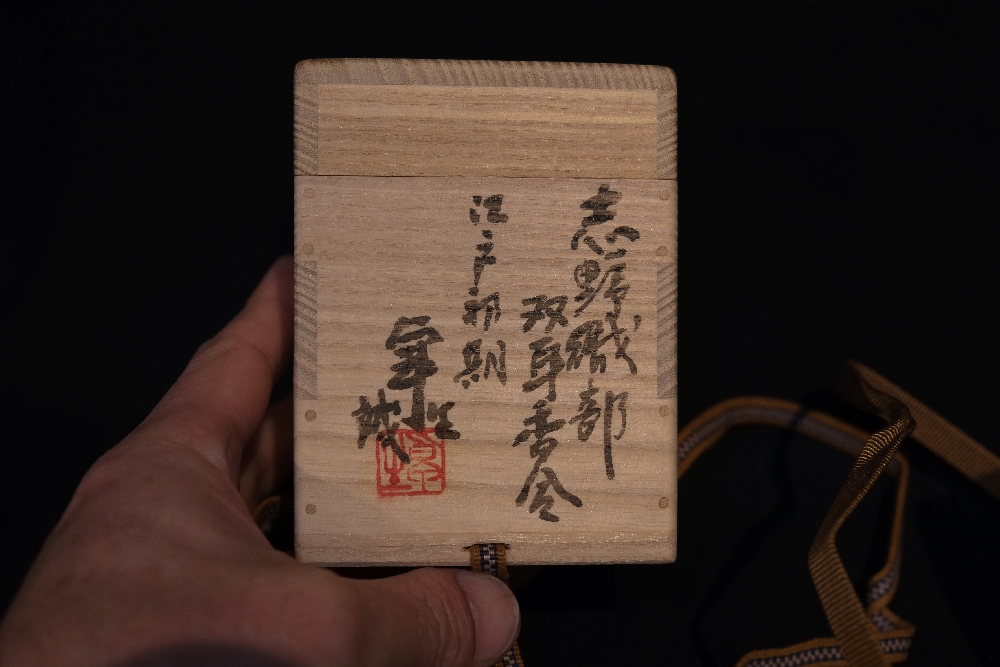 志野織部
双耳香合
江戸初期
誠